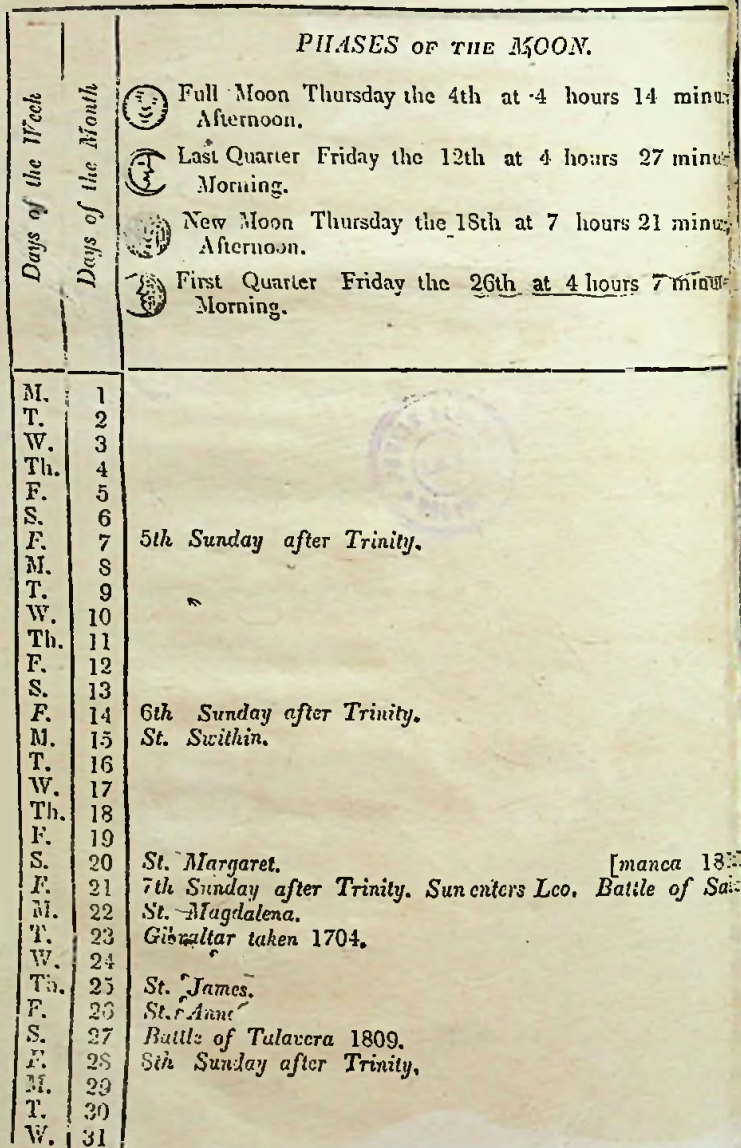 PHASES OF THE MOON.
Days of the Week
Days of the Month
Full Moon Thursday the 4th at 4 hours 14
Afternoon.
Last Quarter Friday the 12th at 4 hours 27
Morning.
New Moon Thursday the 18th at 7 hours 21
Afternoon.
First Quarter Friday the 26th at 4 hours 7
Morning.
M. 1
T. 2
W. 3
Th. 4
F. 5
S. 6
F. 7 5th Sunday after Trinity.
M. 8
T. 9
W. 10
Th. 11
F. 12
S. 13
F. 14 6th Sunday after Trinity.
M. 15 St. Swithin.
T. 16
W. 17
Th. 18
F. 19
S. 20 St. Margaret. [manca
F. 21 7th Sunday after Trinity. Sun enters Leo. Battle of
M. 22 St. Magdalena.
T. 23 Gibraltar taken 1704.
W. 24
Th. 25 St. James.
F. 26 St. Anne
S. 27 Battle of Talavera 1809.
F. 28 8th Sunday after Trinity.
M. 29
T. 30
W. 31